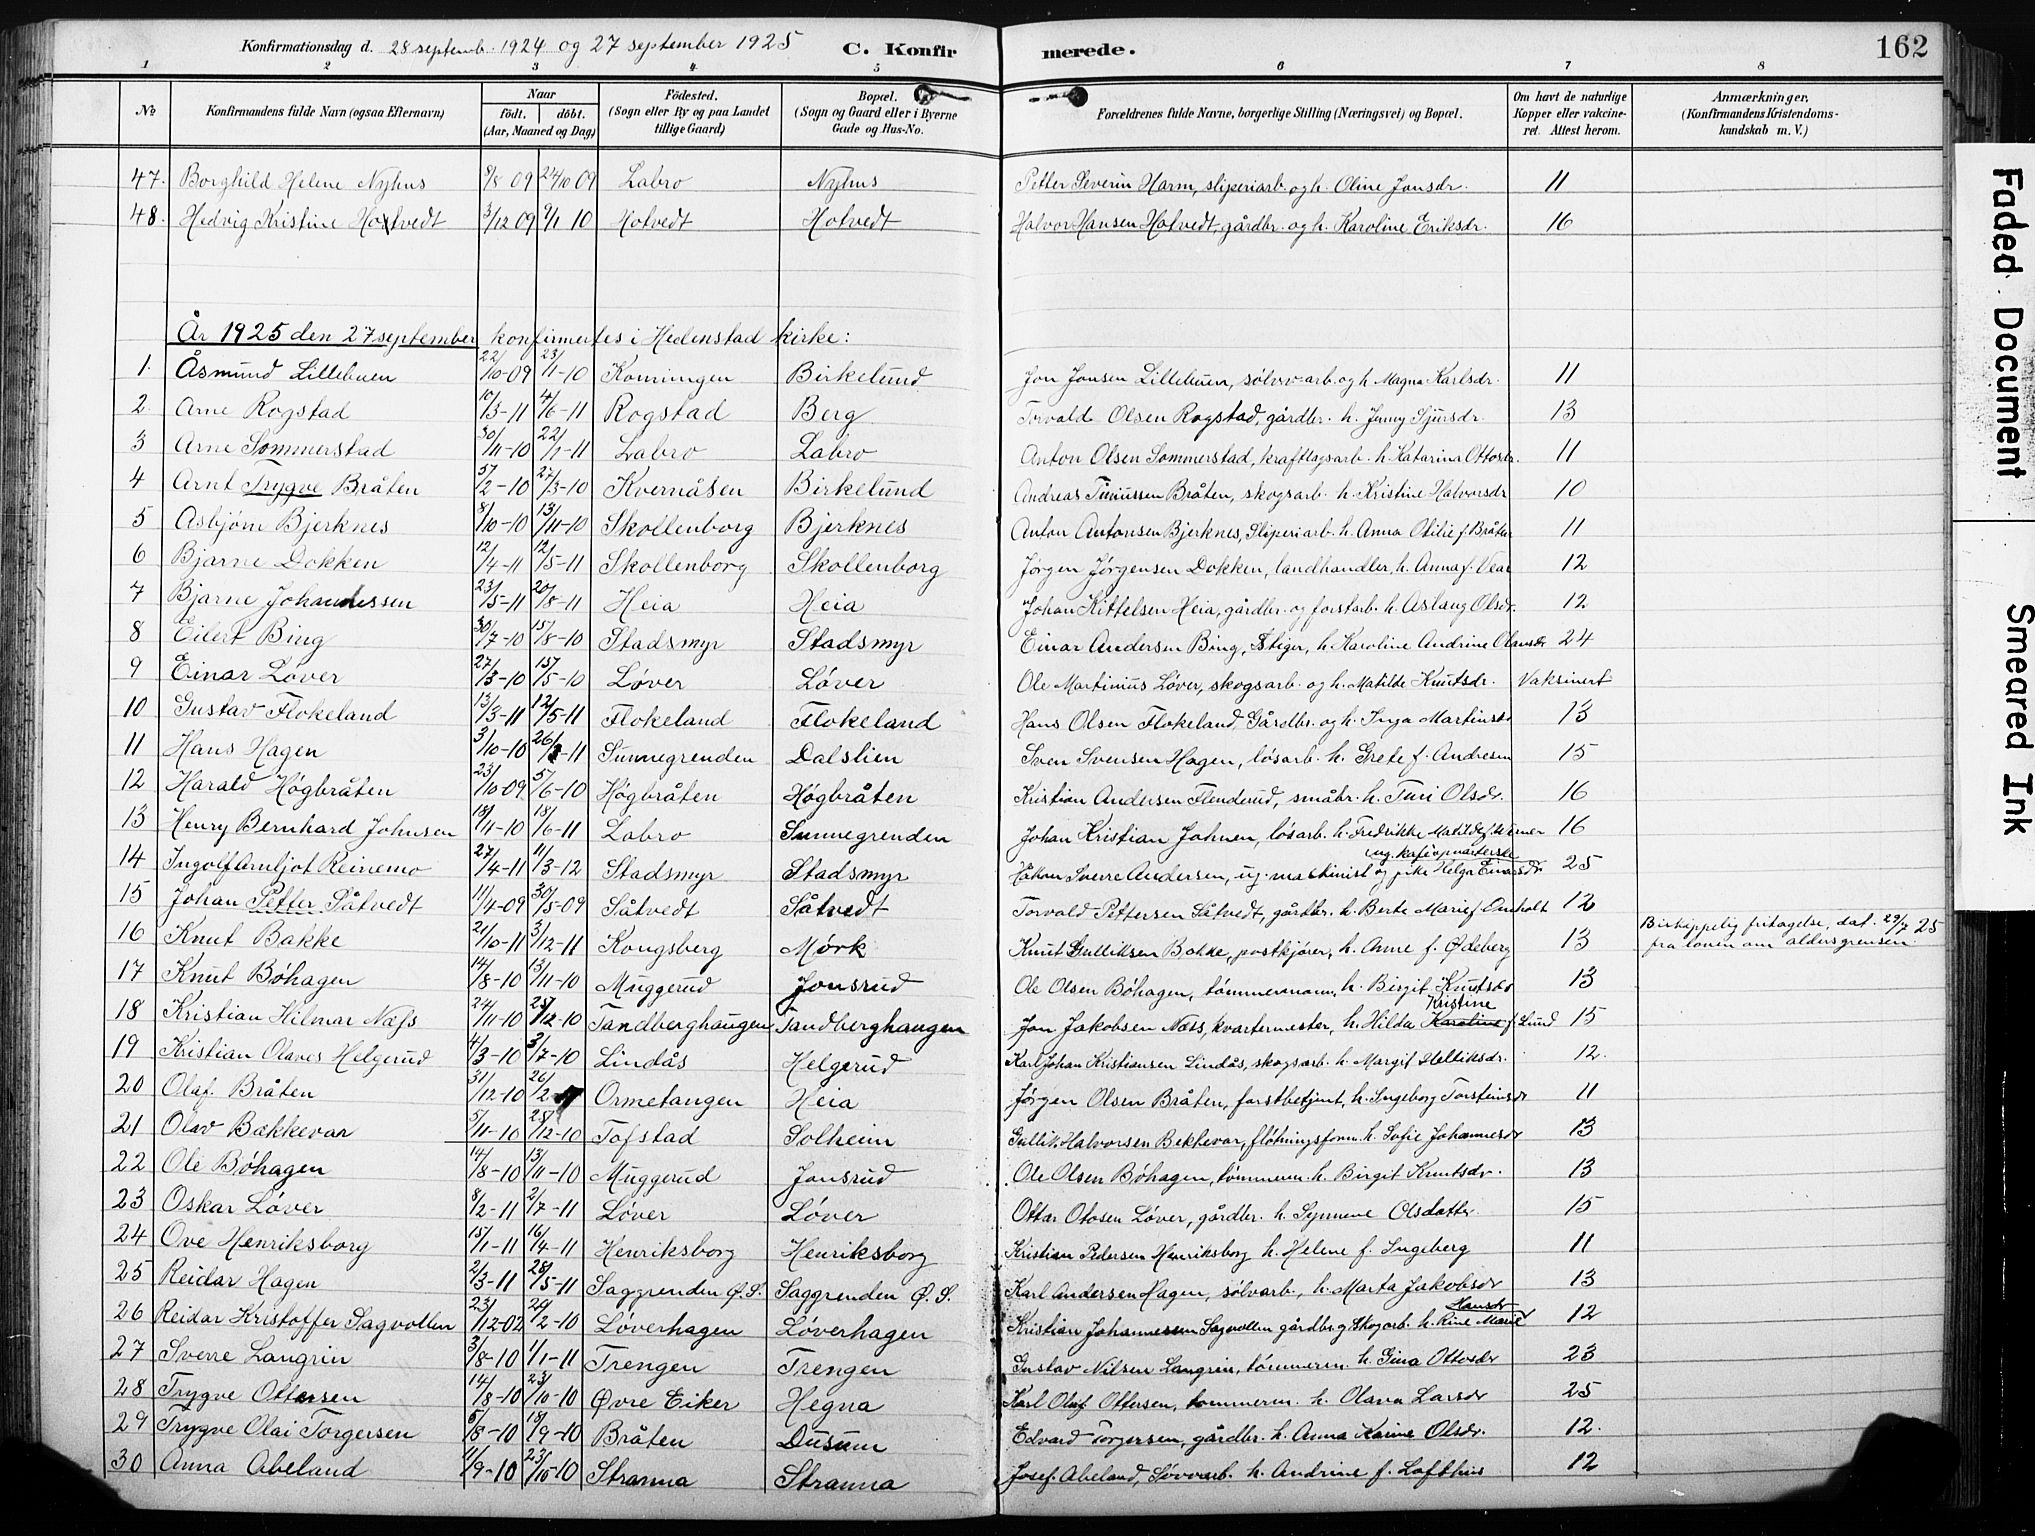 Konfirmationsdag d. 28 septemb. 1924 og 27 september 1925 C. Konfirmerede. 162
1 2 3 4 5 6 7 8
No Konfirmandens fulde Navn (ogsaa Efternavn) Naar født. døbt. (Aar, Maaned og Dag) Fødested. (Sogn eller By og paa Landet tillige Gaard) Bopæl. (Sogn og Gaard eller i Byerne Gade og Hus-No. Forældrenes fulde Navne, borgerlige Stilling (Næringsvei) og Bopæl. Om havt de naturlige Kopper eller vakcineret. Attest herom. Anmærkninger. (Konfirmandens Kristendomskundskab m. V.)
47. Borghild Helene Nyhus 8/8 09 24/10 09 Labro Nyhus Petter Severin Harm, sliperiarb. og h. Oline Jonsdr. 11
48. Hedvig Kristine Hotvedt 3/12 09 9/1 10 Hotvedt Hotvedt Halvor Hansen Hotvedt, gårdbr. og h. Karoline Eriksdr. 16
År 1925 den 27 september konfirmertes i Hedenstad kirke:
1. Åsmund Lillebuen 22/10-09 23/1-10 Komningen Birkelund Jon Jonsen Lillebuen, sølvv-arb. og h. Magna Karlsdr. 11
2. Arne Rogstad 10/3-11 4/6-11 Rogstad Berg Torvald Olsen Rogstad, gårdbr. h. Jenny Sjursdr. 13
3 Arne Sommerstad 30/11-10 22/1-11 Labro Labro Anton Olsen Sommerstad, kraftlagsarb. h. Katarina Ottosdr. 11
4 Arnt Trygve Bråten 5/2-10 27/3-10 Kvernåsen Birkelund Andreas Bråten, skogsarb. h. Kristine Halvorsdr 10
5 Asbjørn Bjerknes 8/10-10 13/11-10 Skollenborg Bjerknes Anton Antonsen Bjerknes, Sliperiarb. h. Anna Otilie f. Bråten 11
6 Bjarne Dokken 12/4-11 12/5-11 Skollenborg Skollenborg Jørgen Jørgensen Dokken, landhandler, h. Anna f. 12
7 Bjarne Johannessen 23/5-11 20/8-11 Heia Heia Johan Kittelsen Heia, gårdbr. og forstarb. h. Aslaug Olsdr. 12
8 Eilert Bing 30/7-10 15/8-10 Stadsmyr Stadsmyr Einar Andersen Bing, Stiger, h. Karoline Andrine Olavsdr 24
9 Einar Løver 27/3-10 15/5-10 Løver Løver Ole Martinius Løver, skogsarb. og h. Matilde Knutsdr. Vaksinert
10 Gustav Flokeland 13/3-11 12/5-11 Flokeland Flokeland Hans Olsen Flokeland, Gårdbr. og h. Inga Martinsdr 13
11 Hans Hagen 3/10-10 26/3-11 Sunnegrenden Dalslien Sven Svensen Hagen, løsarb. h. Grete f. Andresen 15
12 Harald Høgbråten 23/10-09 5/6-10 Høgbråten Høgbråten Kristian Andersen Flenderud, småbr. h. Turi Olsdr. 16
13 Henry Bernhard Johnsen 18/11-10 18/6-11 Labro Sunnegrenden Johan Kristian Johnsen, løsarb. h. Fredrikke Matilde f. 16
14 Ingolf Arnljot Reinemo 27/4-11 11/3-12 Stadsmyr Stadsmyr Håkon Sverre Andersen, ug. maskinist og pike Helga Einarsdr 25
15 Johan Petter Såtvedt 11/4-09 30/5-09 Såtvedt Såtvedt Torvald Pettersen Såtvedt, gårdbr. h. Berte Marie f. Omholt 12
16 Knut Bakke 21/10-11 3/12-11 Kongsberg Mørk Knut Gulliksen Bakke, postkjører, h. Anne f. Ødeberg 13 Biskoppelig fritagelse, dat. 29/7 25
fra loven om aldersgrensen.
17 Knut Bøhagen 14/8-10 13/11-10 Muggerud Jonsrud Ole Olsen Bøhagen, tømmermann, h. Birgit Knutsdr 13
18 Kristian Hilmar Næss 24/11-10 25/12-10 Tandberghaugen Tandberghaugen Jon Jakobsen Næss, kvartermester, h. Hilda Karoline Kristine f. Lund 15
19 Kristian Olaves Helgerud 4/3-10 3/7-10 Lindås Helgerud Karl Johan Kristiansen Lindås, skogsarb. h. Margit 12.
20 Olaf Bråten 31/12-10 26/2 Ormetangen Heia Jørgen Olsen Bråten, forstbetjent, h. Ingeborg Torsteinsdr 11
21 Olav Bækkevar 5/11-10 25/12-10 Tofstad Solheim Gullik Halvorsen Bekkevar, fløtningsform. h. Sofie Johannesdr 13
22 Ole Bøhagen 14/8-10 13/11-10 Muggerud Jonsrud Ole Olsen Bøhagen, tømmerm. h. Birgit Knutsdr. 13
23 Oskar Løver 8/2-11 2/7-11 Løver Løver Ottar Olosen Løver, gårdbr. h. Synneve Olsdatter 15
24 Ove Henriksborg 15/1-11 16/4-11 Henriksborg Henriksborg Kristian Pedersen Henriksborg h. Helene f. Ingeberg 11
25 Reidar Hagen 2/3-11 28/5-11 Saggrenden Ø.S. Saggrenden Ø.S. Karl Andersen Hagen, sølvarb., h. Marta Jakobsdr 13
26 Reidar Kristoffer Sagvollen 23/12-02 29/2-10 Løverhagen Løverhagen Kristian Johannessen Sagvollen gårdbr. og Skogarb. h. Rine Marie Hansdr 12
27 Sverre Langrin 3/8-10 1/1-11 Trengen Trengen Gustav Nilsen Langrin, tømmerm. h. Gina Ottosdr 23
28 Trygve Ottersen 14/8-10 23/10-10 Øvre Eiker Hegna Karl Olaf Ottersen, tømmerm. h. Olava Larsdr 25
29 Trygve Olai Torgersen 5/8-10 18/9-10 Bråten Dusum Edvard Torgersen, gårdbr. h. Anna Karine Olsdr. 12.
30 Anna Abeland 11/9-10 23/10-10 Stranna Stranna Josef Abeland, h. Andrine f. Lofthus 12
Faded Document
Smeared Ink